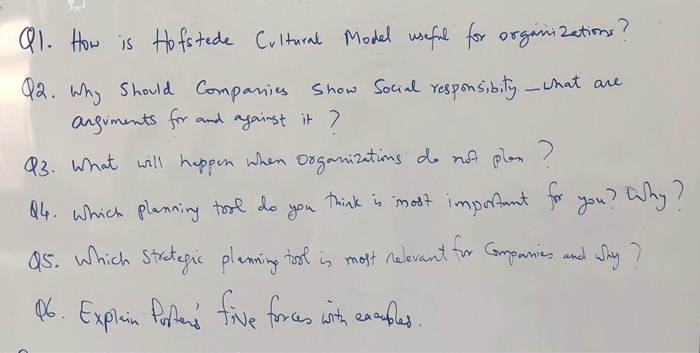 Q1. How is Hofstede Cultural Model useful for organizations?
Q2. Why Should Companies Show Social responsibity – what are
arguments for and against it ?
Q3. What will happen when Organizations do not plan ?
Q4. Which planning tool do you think is most important for you? Why?
Q5. Which Strategic planning tool is most relevant for Companies and Why ?
Q6. Explain Porters' five forces with examples.